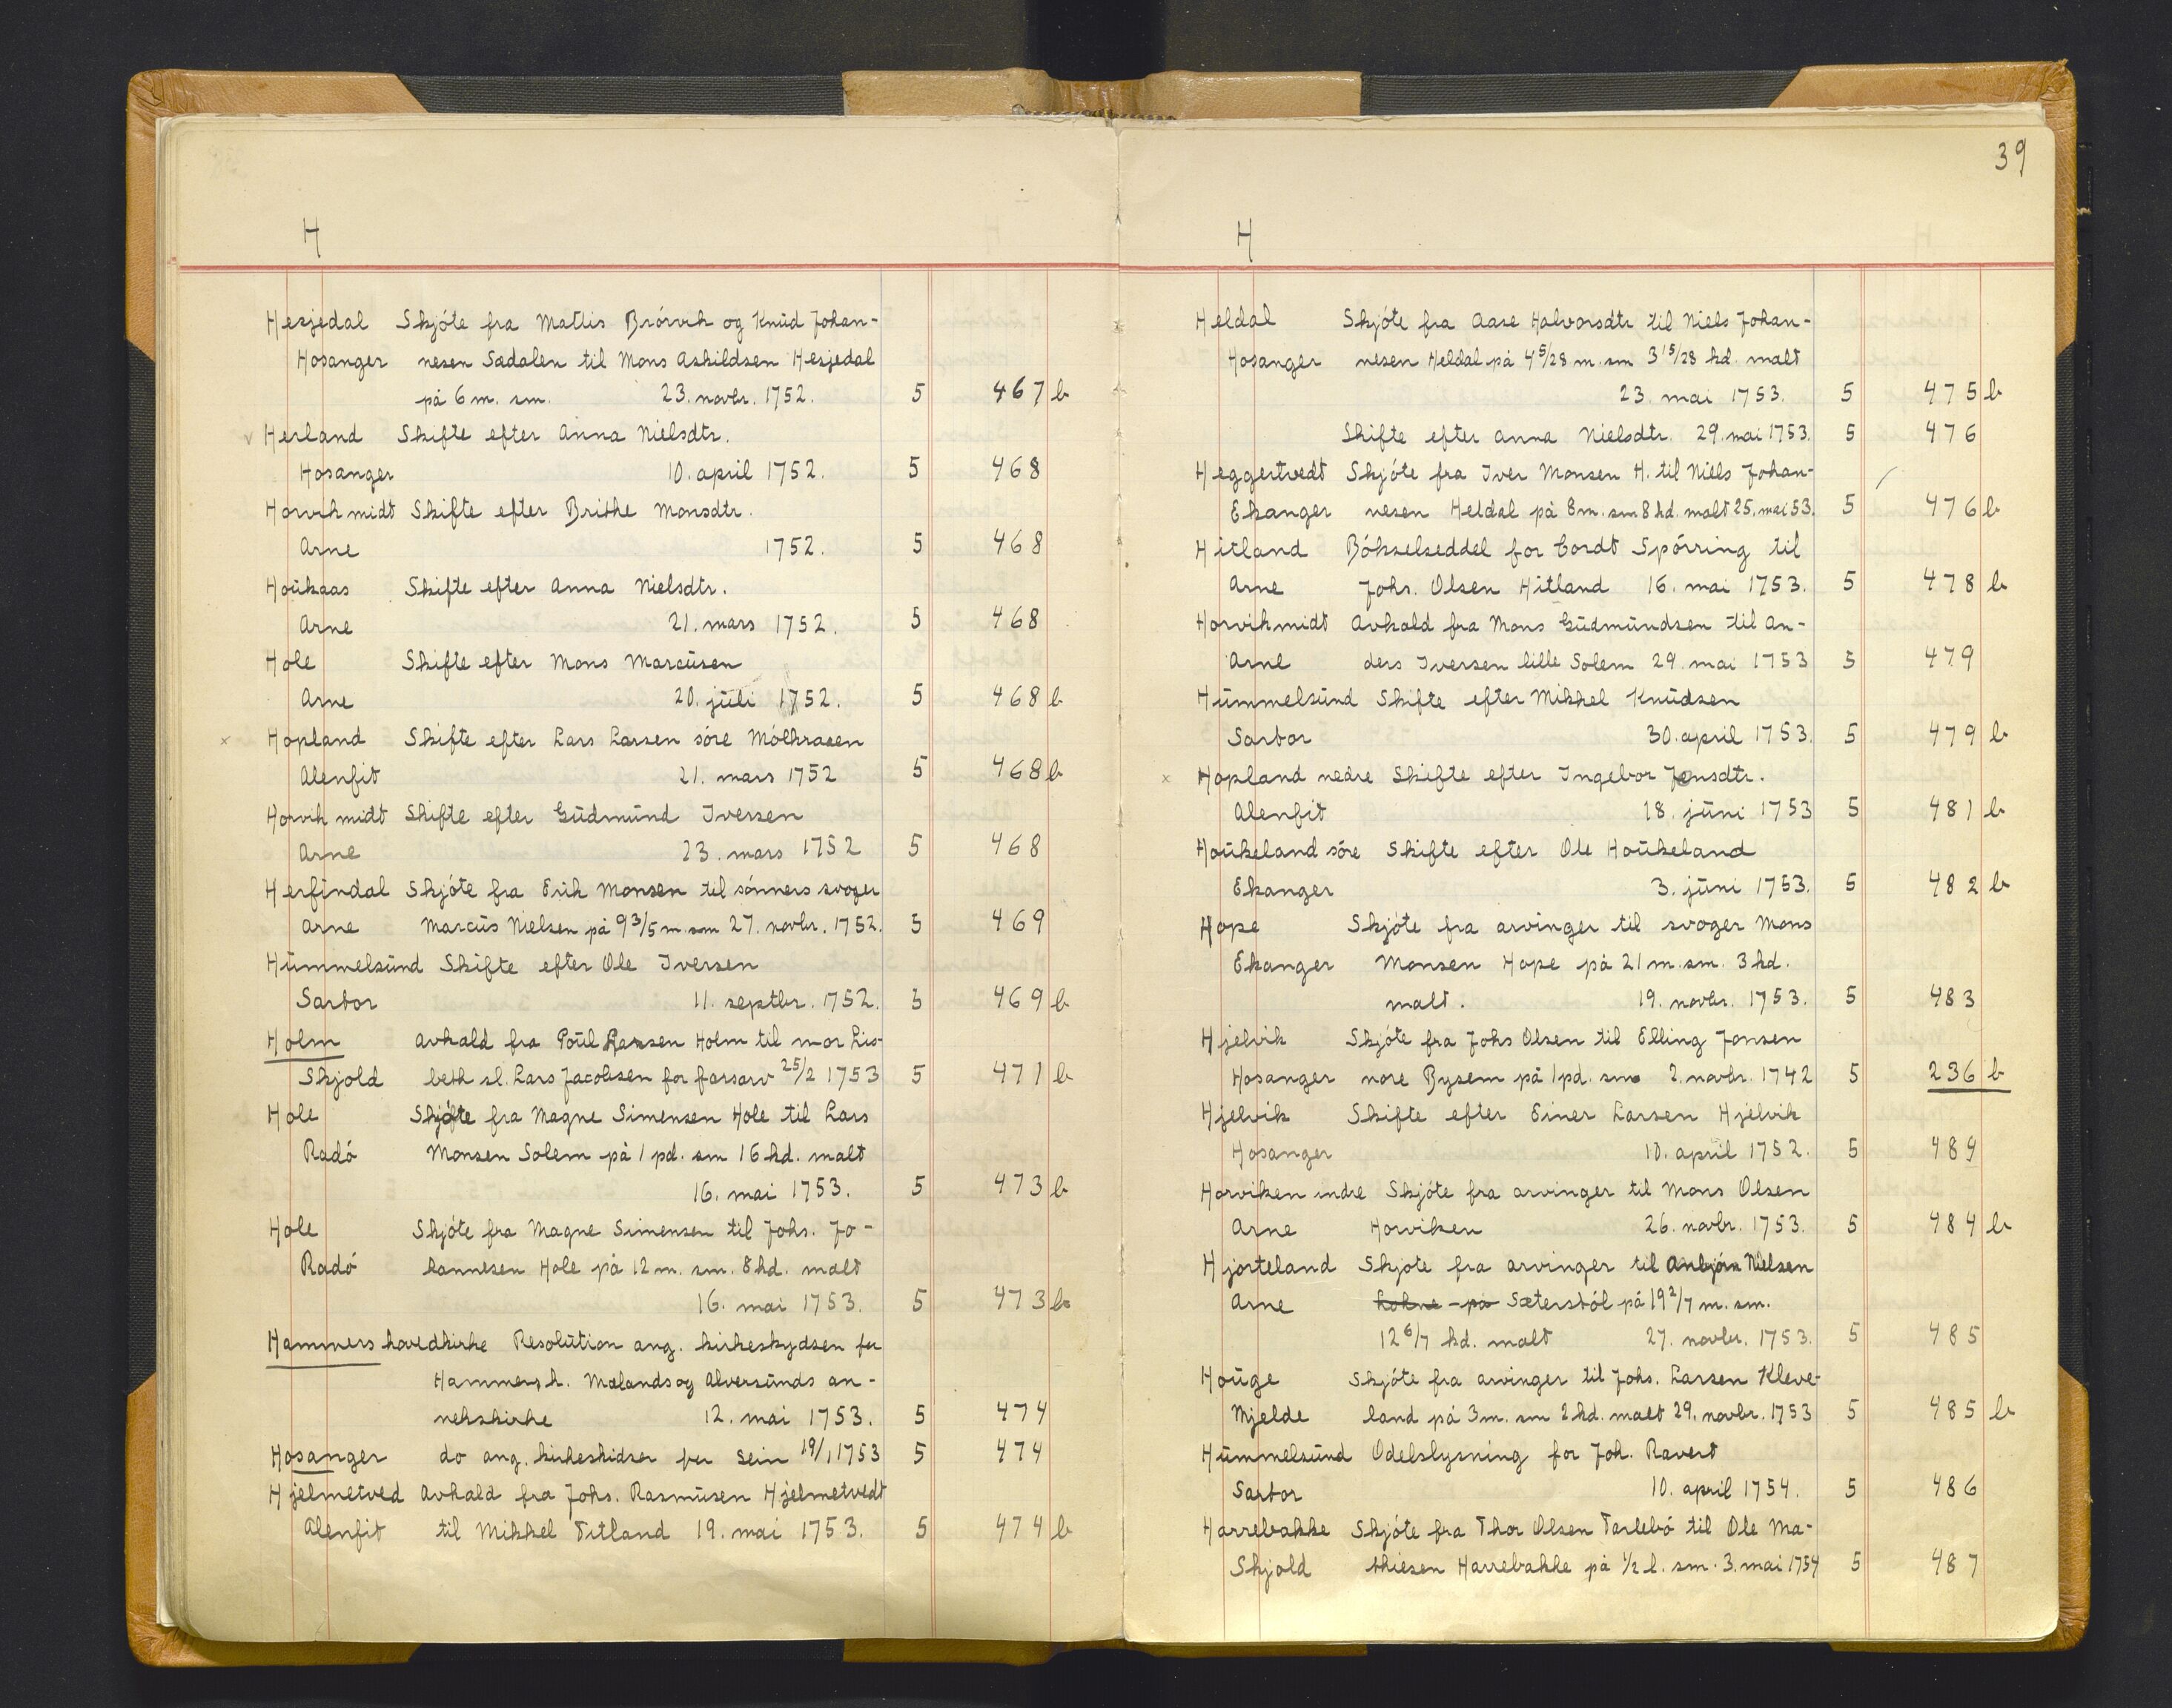 H
Hesjedal Skjóte fra Mattis Brórvik og Knud Johan-
Hosanger nesen Sædalen til Mons Askildsen Hesjedal
på 6 m. sm. 23. novbr. 1752. 5 467 b
v Herland Skifte efter Anna Nielsdtr.
Hosanger 10. april 1752. 5 468
Horvik midt Skifte efter Brithe Monsdtr.
Arne 1752. 5 468
Houkaas Skifte efter Anna Nielsdtr.
Arne 21. mars 1752. 5 468
Hole Skifte efter Mons Marcusen
Arne 20. juli 1752. 5 468 b
x Hopland Skifte efter Lars Larsen sóre Mólkraaen
Alenfit 21. mars 1752 5 468 b
Horvik midt Skifte efter Gudmund Iversen
Arne 23. mars 1752 5 468
Herfindal Skjóte fra Erik Monsen til sónners svoger
Arne Marcus Nielsen på 9 3/5 m. sm 27. novbr. 1752. 5 469
Hummelsund Skifte efter Ole Iversen
Sartor 11. septbr. 1752. 5 469 b
Holm Avkald fra Poul Larsen Holm til mor Lis-
Skjold beth sl. Lars Jacobsen for farsarv 25/2 1753 5 471 b
Hole Skjóte fra Magne Simensen Hole til Lars
Radó Monsen Solem på 1 pd. sm 16 kd. malt
16. mai 1753. 5 473 b
Hole Skjóte fra Magne Simensen til Johs. Jo-
Radó hannesen Hole på 12 m. sm. 8 kd. malt
16. mai 1753. 5 473 b
Hammers hovedkirke Resolution ang. kirkeskydsen for
Hammers h. Mælands og Alversunds an-
nekskirke 12. mai 1753. 5 474
Hosanger do ang. kirkeskidser for Sein 19/1 1753 5 474
Hjelmetved Avkald fra Johs. Rasmusen Hjelmetvedt
Alenfit til Mikkel Titland 19. mai 1753. 5 474 b
39
H
Heldal Skjóte fra Aase Halvorsdtr til Niels Johan-
Hosanger nesen Heldal på 4 5/28 m. sm 3 15/28 kd. malt
23. mai 1753. 5 475 b
Skifte efter Anna Nielsdtr. 29. mai 1753. 5 476
Heggertvedt Skjóte fra Iver Monsen H. til Niels Johan-
Ekanger nesen Heldal på 8 m. sm 8 kd. malt 25. mai 53. 5 476 b
Hitland Bókselseddel for Cordt Spórring til
Arne Johs. Olsen Hitland 16. mai 1753. 5 478 b
Horvikmidt Avkald fra Mons Gudmundsen til An-
Arne ders Iversen lille Solem 29. mai 1753 5 479
Hummelsund Skifte efter Mikkel Knudsen
Sartor 30. april 1753. 5 479 b
x Hopland nedre Skifte efter Ingebor Jensdtr.
Alenfit 18. juni 1753 5 481 b
Houkeland sóre Skifte efter Ole Houkeland
Ekanger 3. juni 1753. 5 482 b
Hope Skjóte fra arvinger til svoger Mons
Ekanger Monsen Hope på 21 m. sm. 3 kd.
malt. 19. novbr. 1753. 5 483
Hjelvik Skjóte fra Johs Olsen til Elling Jonsen
Hosanger nore Bysem på 1 pd. sm 2. novbr. 1742 5 236 b
Hjelvik Skifte efter Einer Larsen Hjelvik
Hosanger 10. april 1752. 5 484
Horviken indre Skjóte fra arvinger til Mons Olsen
Arne Horviken 26. novbr. 1753. 5 484 b
Hjorteland Skjote fra arvinger til Anbjórn Nielsen
Arne på Sæterstól på 19 2/7 m. sm.
12 6/7 kd. malt 27. novbr. 1753. 5 485
Houge Skjóte fra arvinger til Johs. Larsen Kleve-
Mjelde land på 3 m. sm 2 kd. malt 29. novbr. 1753 5 485 b
Hummelsund Odelslysning for Joh. Ravert
Sartor 10. april 1754. 5 486
Harrebakke Skjóte fra Thor Olsen Tarlebó til Ole Ma-
Skjold thiesen Harrebakke på 1/2 l. sm. 3. mai 1754 5 487